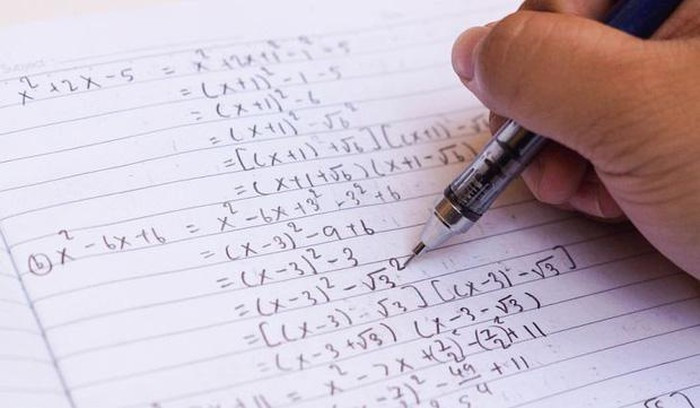 Subject
x² + 2x - 5 = x² + 2x + 1² - 1² - 5
= (x+1)² - 1 - 5
= (x+1)² - 6
= (x+1)² - √6²
= [(x+1) + √6] [(x+1) - √
= (x+1+√6)(x+1-√6)
(b) x² - 6x + 6 = x² - 6x + 3² - 3² + 6
= (x-3)² - 9 + 6
= (x-3)² - 3
= (x-3)² - √3²
= [(x-3) - √3] [(x-3) - √3]
= (x-3+√3) (x-3-√3)
+ 11 = x² - 7x + (7/2)² - (7/2)² + 11
)² - 49/4 + 11